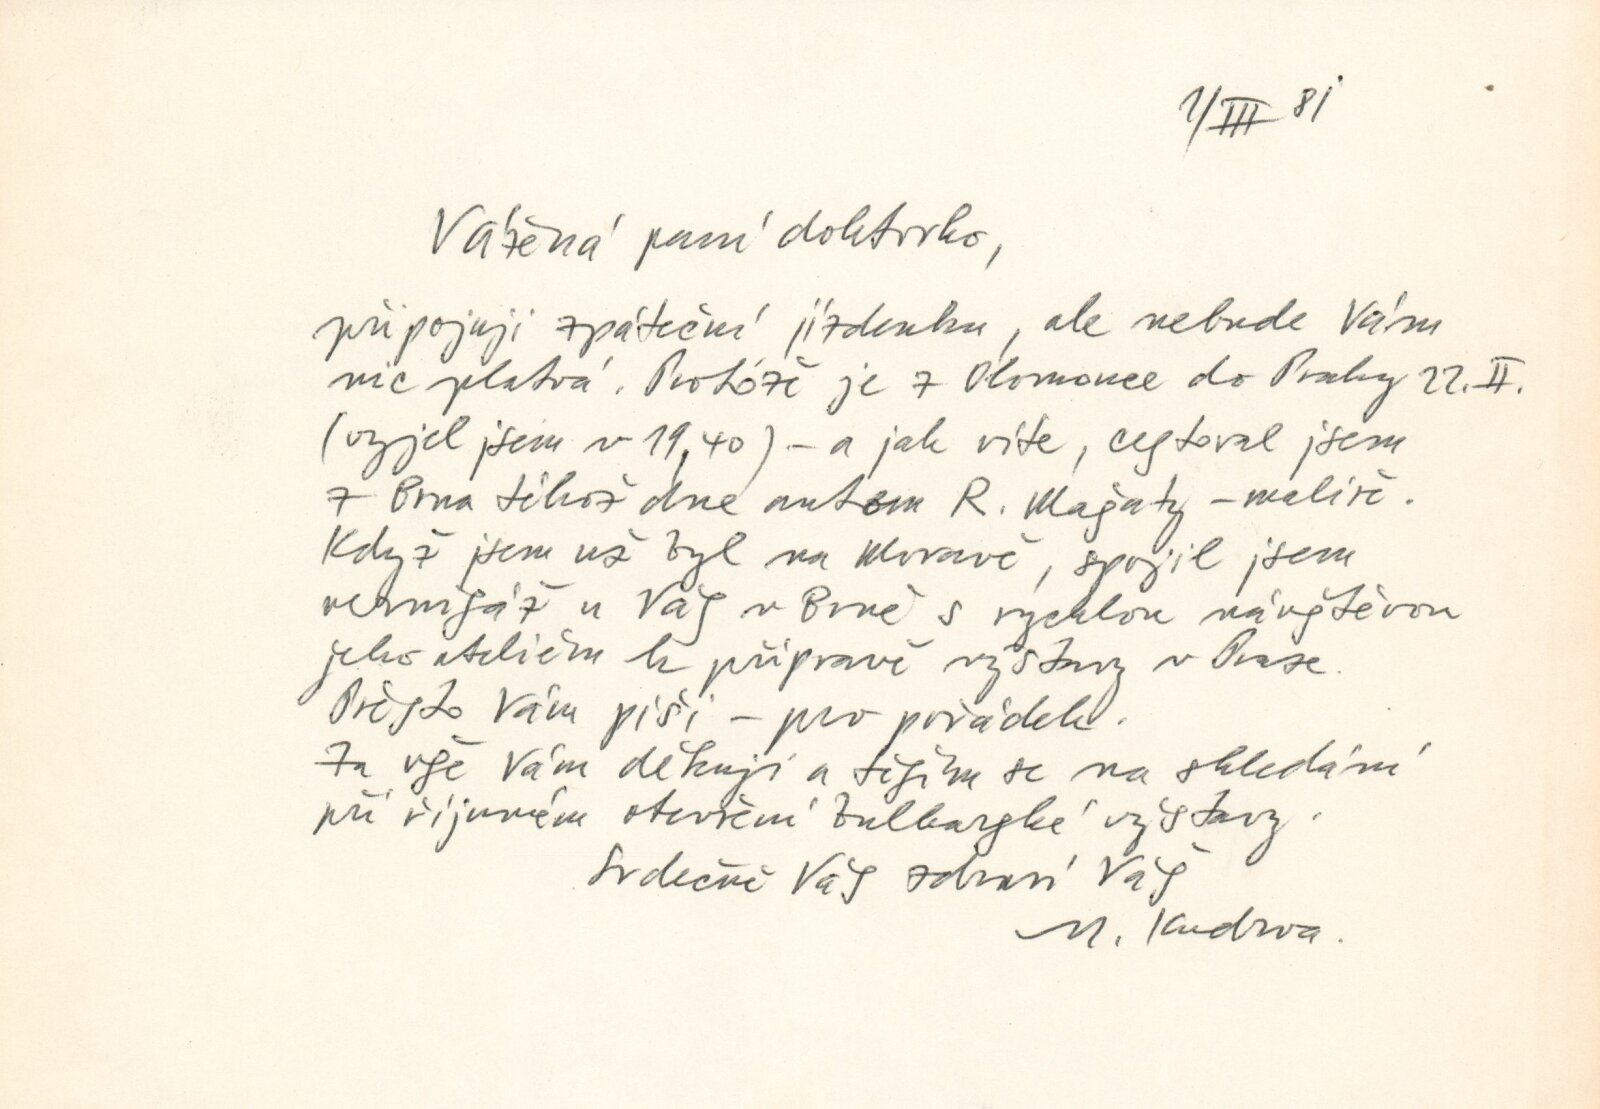 1/III 81
Vážená paní doktorko,
připojuji zpáteční jízdenku, ale nebude Vám
nic platná. Protože je z Olomouce do Prahy 22. II.
(vyjel jsem v 19,40) – a jak víte, cestoval jsem
z Brna téhož dne autem R. Magaty – malíře.
Když jsem už byl na Moravě, spojil jsem
vernisáž u Vás v Brně s rychlou návštěvou
jeho ateliéru k přípravě výstavy v Praze.
Přesto Vám píši – pro pořádek.
Za vše Vám děkuji a těším se na shledání
při říjnovém otevření bulharské výstavy.
Srdečně Vás zdraví Váš
M. Kudrna.